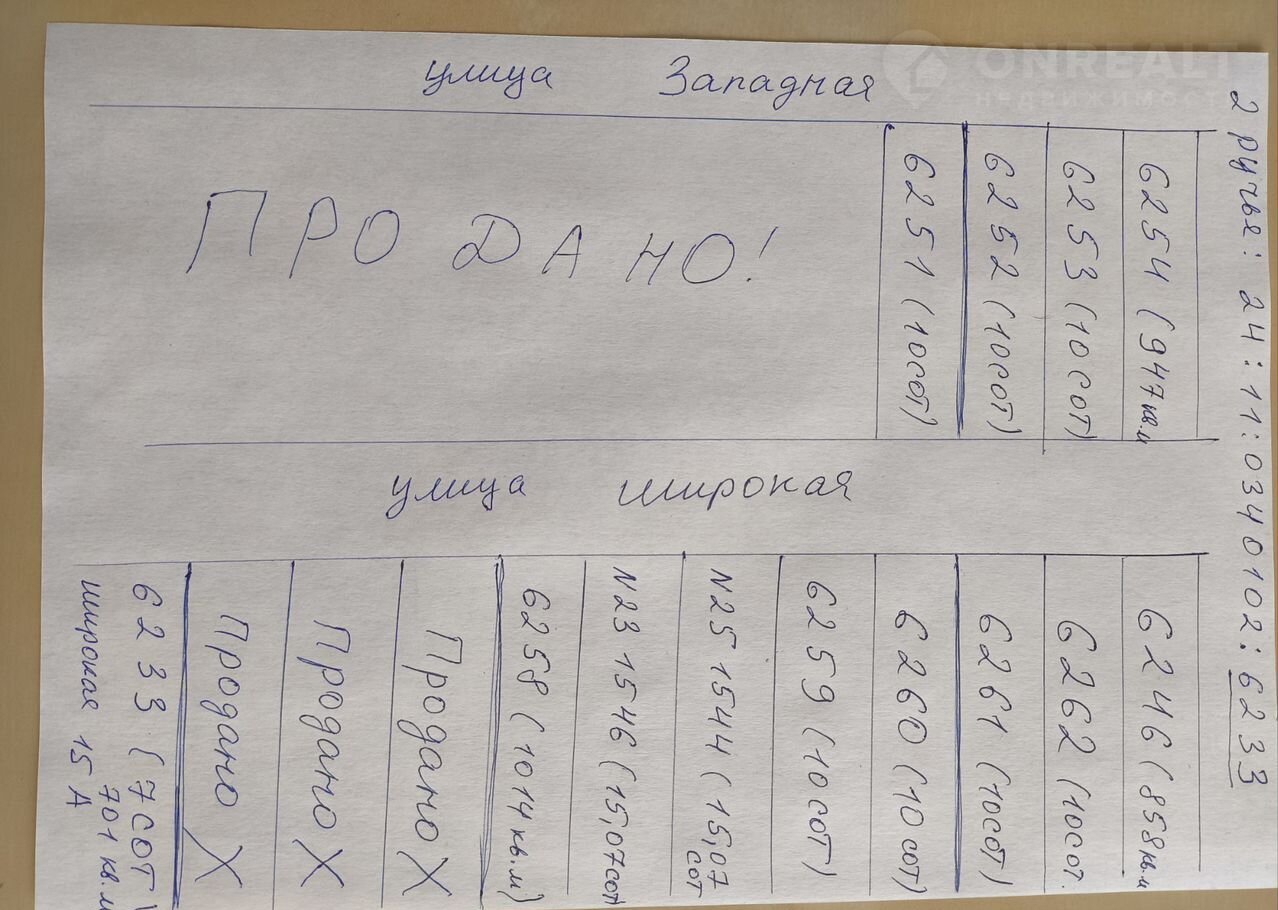 ONREALT
НЕДВИЖИМОСТЬ
улица Западная
ПРОДАНО!
6251 (10сот)
6252 (10сот)
6253 (10сот)
6254 (947кв.м
2 ручья: 24:11:0340102:6233
улица широкая
6233 (7сот
701 кв.м
широкая 15 А
Продано X
Продано X
Продано X
6258 (1014кв.м)
N23 1546 (15,07сот)
N25 1544 (15,07 сот
6259 (10сот)
6260 (10сот)
6261 (10сот)
6262 (10сот.
6246 (858кв.м